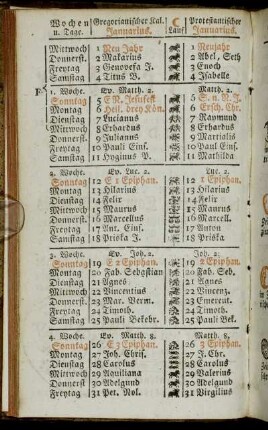 Wochen Gregorianischer Kal. C Protestantischer
u. Tage. Januarius. Lauf Januarius.
Mittwoch 1 Neu Jahr 1 Neujahr
Donnerst. 2 Makarius 2 Abel, Seth
Freytag 3 Genovefa J. 3 Enoch
Samstag 4 Titus B. 4 Isabelle
1. Woche. Ev. Matth. 2. Matth. 2.
Sonntag 5 5 S. n. N. J.
Montag 6 Heil. drey Kön. 6 Ersch. Chr.
Dienstag 7 Lucianus 7 Raymund
Mittwoch 8 Erhardus 8 Erhardus
Donnerst. 9 Julianus 9 Martialis
Freytag 10 Pauli Einf. 10 Pauli Eins.
Samstag 11 Hyginus P. 11 Mathilda
2. Woche. Ev. Luc. 2. Luc. 2.
Sonntag 12 E 1 Epiphan. 12 1 Epiphan.
Montag 13 Hilarius 13 Hilarius
Dienstag 14 Felix 14 Felix
Mittwoch 15 Maurus 15 Maurus
Donnerst. 16 Marcellus 16 Marcell.
Freytag 17 Ant. Einf. 17 Anton
Samstag 18 Priska J. 18 Priska
3. Woche. Ev. Joh. 2. Joh. 2.
Sonntag 19 2 Epiphan. 19 2 Epiphan.
Montag 20 Fab. Sebastian 20 Fab. Seb.
Dienstag 21 Agnes 21 Agnes
Mittwoch 22 Vincentius 22 Vincenz.
Donnerst. 23 Mar. Verm. 23 Emerent.
Freytag 24 Timoth. 24 Timoth.
Samstag 25 Pauli Bekehr. 25 Pauli Bek.
4. Woche. Ev. Matth. 8. Matth. 8.
Sonntag 26 E 3 Epiphan. 26 3 Epiphan.
Montag 27 Joh. Chris. 27 J. Chr.
Dienstag 28 Carolus 28 Carolus
Mittwoch 29 Aquilina 29 Valerius
Donnerst. 30 Adelgund 30 Adelgund
Freytag 31 Pet. Nol. 31 Virgilius